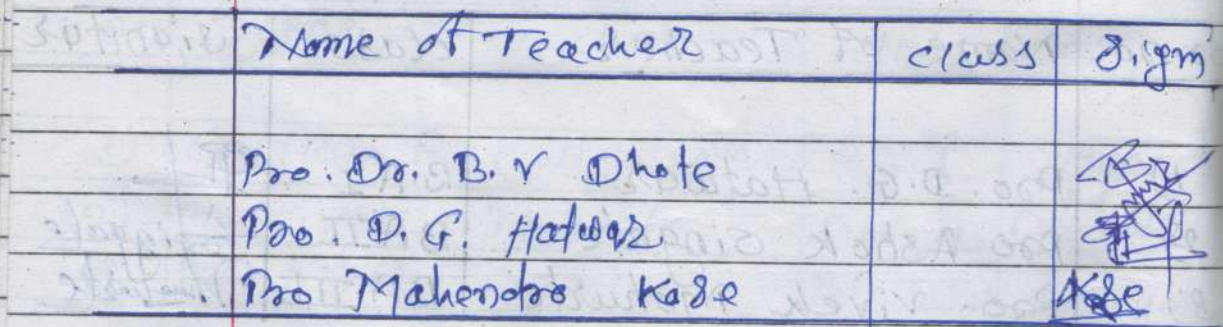 Name of Teacher class Sign
Pro. Dr. B. V Dhote
Pro. D. G. Hatwar
Pro Mahendra Kase Kase